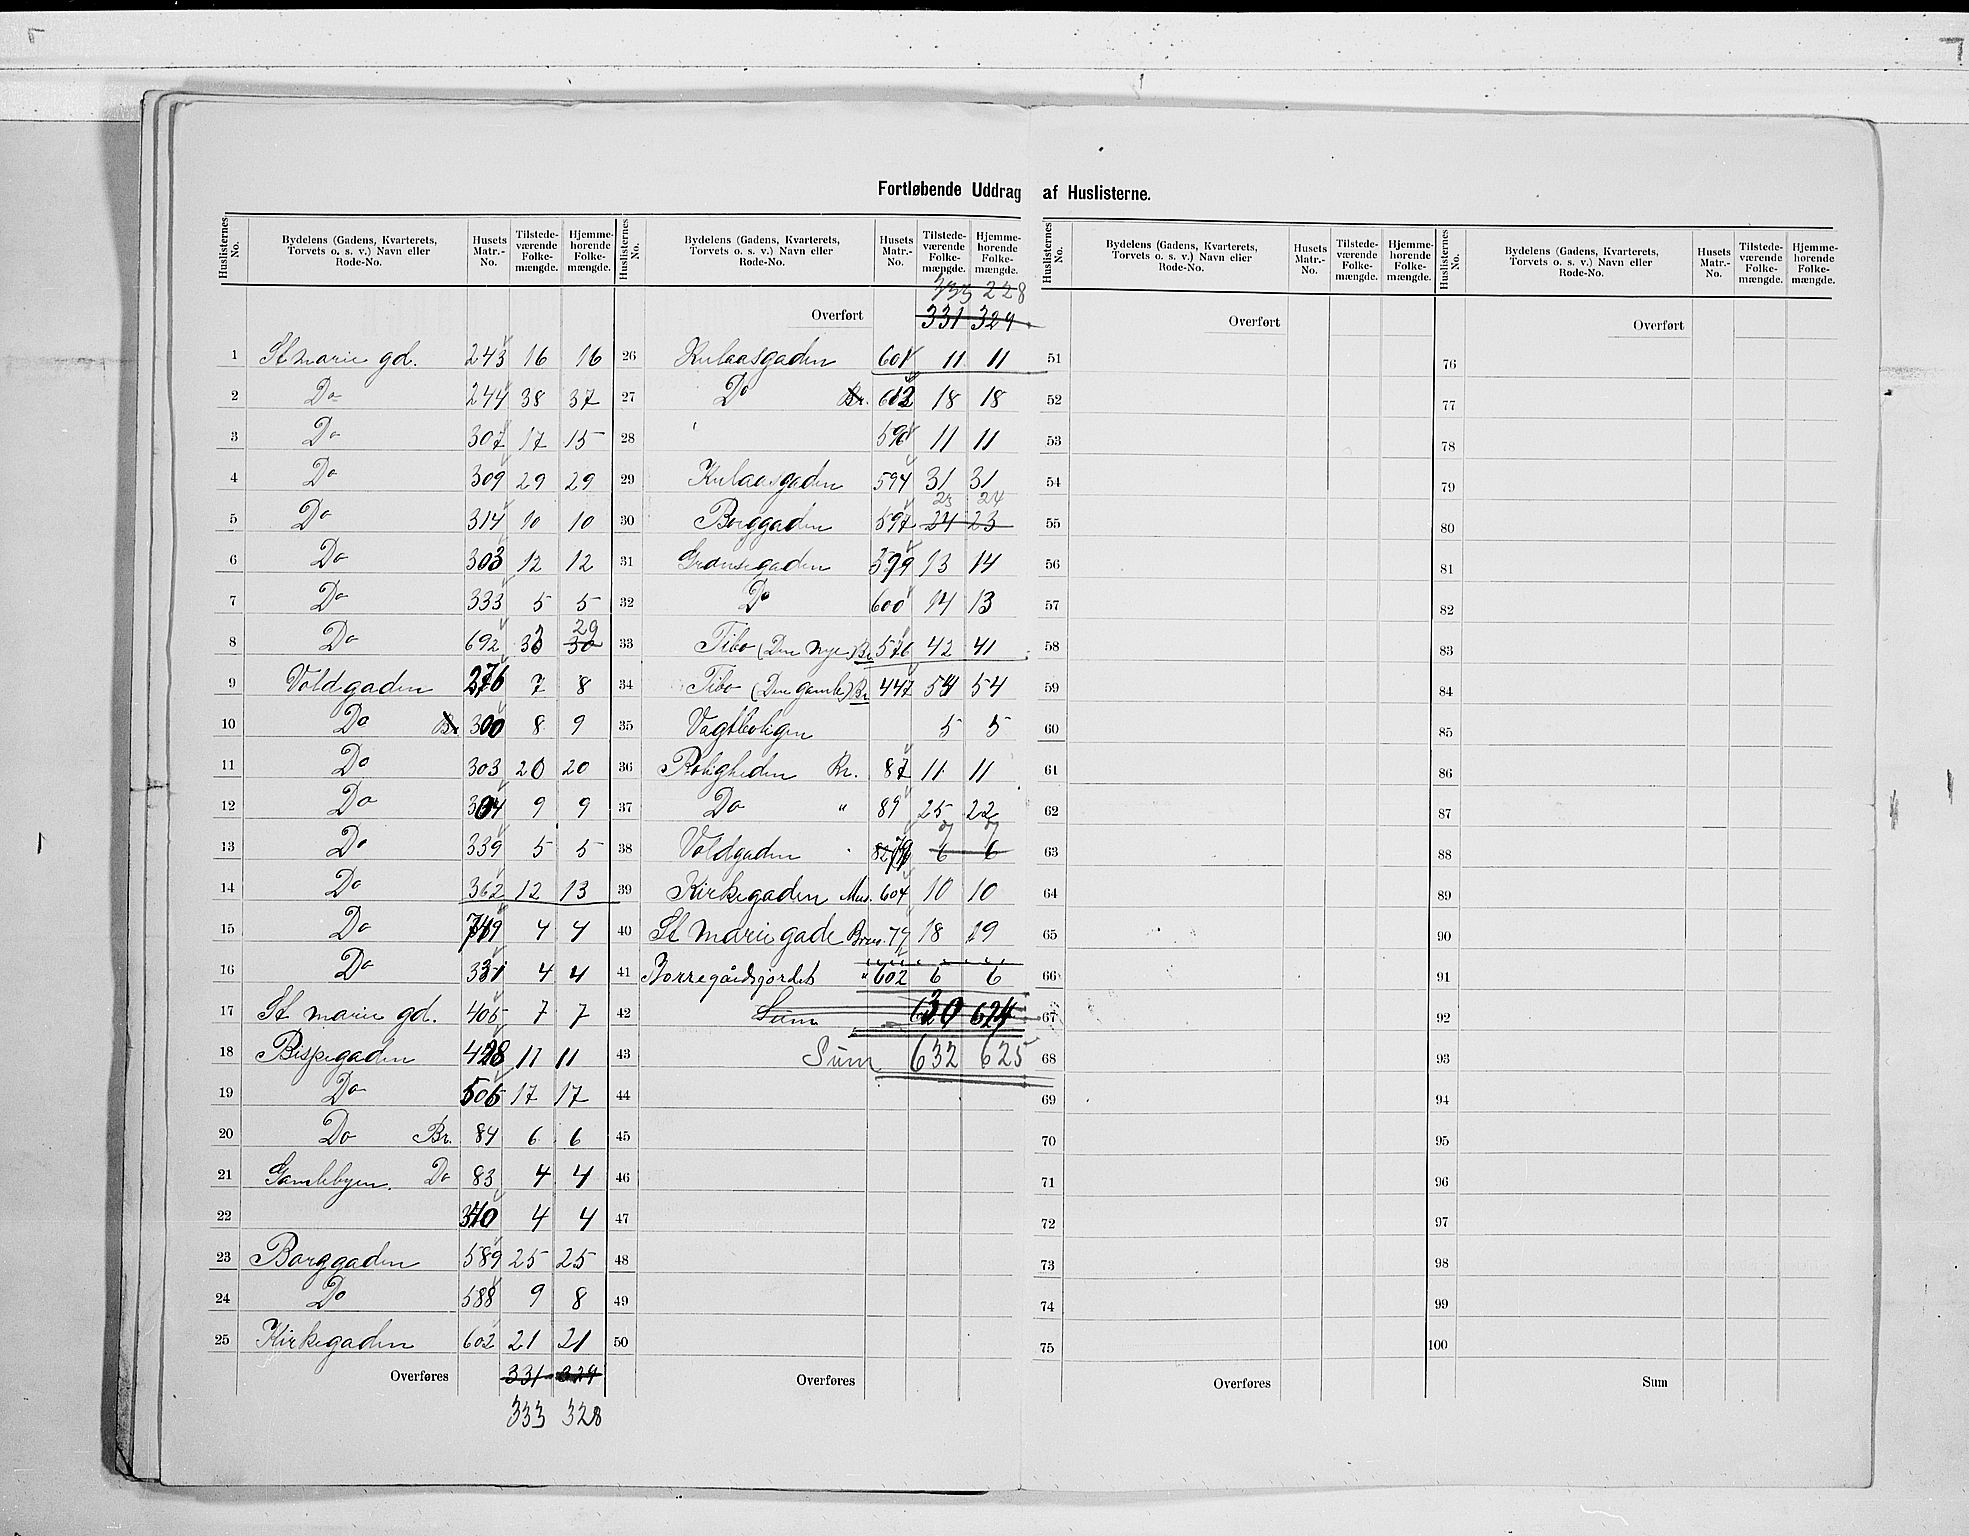 Fortløbende Uddrag af Huslisterne.
Huslisternes No. | Bydelens (Gadens, Kvarterets, Torvets o. s. v.) Navn eller Rode-No. | Husets Matr.-No. | Tilstedeværende Folkemængde. | Hjemmehørende Folkemængde.
1 St marie gd. 243 16 16
2 Do 244 38 37
3 Do 307 17 15
4 Do 309 29 29
5 Do 314 10 10
6 Do 303 12 12
7 Do 333 5 5
8 Do 692 33 29 30
9 Voldgaden 276 7 8
10 Do Br 300 8 9
11 Do 303 20 20
12 Do 304 9 9
13 Do 339 5 5
14 Do 362 12 13
15 Do 4 4
16 Do 331 4 4
17 St marie gd. 405 7 7
18 Bispegaden 428 11 11
19 Do 505 17 17
20 Do Br. 84 6 6
21 Gamlebyen. Do 83 4 4
22 340 4 4
23 Borggaden 589 25 25
24 Do 588 9 8
25 Kirkegaden 602 21 21
Overføres 331 329
333 328
Huslisternes No. | Bydelens (Gadens, Kvarterets, Torvets o. s. v.) Navn eller Rode-No. | Husets Matr.-No. | Tilstedeværende Folkemængde. | Hjemmehørende Folkemængde.
333 228
Overført 331 329
26 Kulaasgaden 601 11 11
27 Do Br. 18 18
28 590 11 11
29 Kulaasgaden 594 31 31
23 24
30 Borggaden 597 24 23
31 Grænsegaden 599 13 14
32 Do 600 14 13
33 Tibo (Den nye) Br 576 42 41
34 Tibo (Den gamle) Br 447 54 54
35 Vagtboligen 5 5
36 Roligheden Br. 87 11 11
37 Do " 89 25 22
7 7
38 Voldgaden 6 6
39 Kirkegaden Mur. 604 10 10
40 St marie gade 79 18 19
41 Borregårdsjordet " 602 6 6
42 Sum 630 624
43 Sum 632 625
44
45
46
47
48
49
50
Overføres
Huslisternes No. | Bydelens (Gadens, Kvarterets, Torvets o. s. v.) Navn eller Rode-No. | Husets Matr.-No. | Tilstedeværende Folkemængde. | Hjemmehørende Folkemængde.
Overført
51
52
53
54
55
56
57
58
59
60
61
62
63
64
65
66
67
68
69
70
71
72
73
74
75
Overføres
Huslisternes No. | Bydelens (Gadens, Kvarterets, Torvets o. s. v.) Navn eller Rode-No. | Husets Matr.-No. | Tilstedeværende Folkemængde. | Hjemmehørende Folkemængde.
Overført
76
77
78
79
80
81
82
83
84
85
86
87
88
89
90
91
92
93
94
95
96
97
98
99
100
Sum